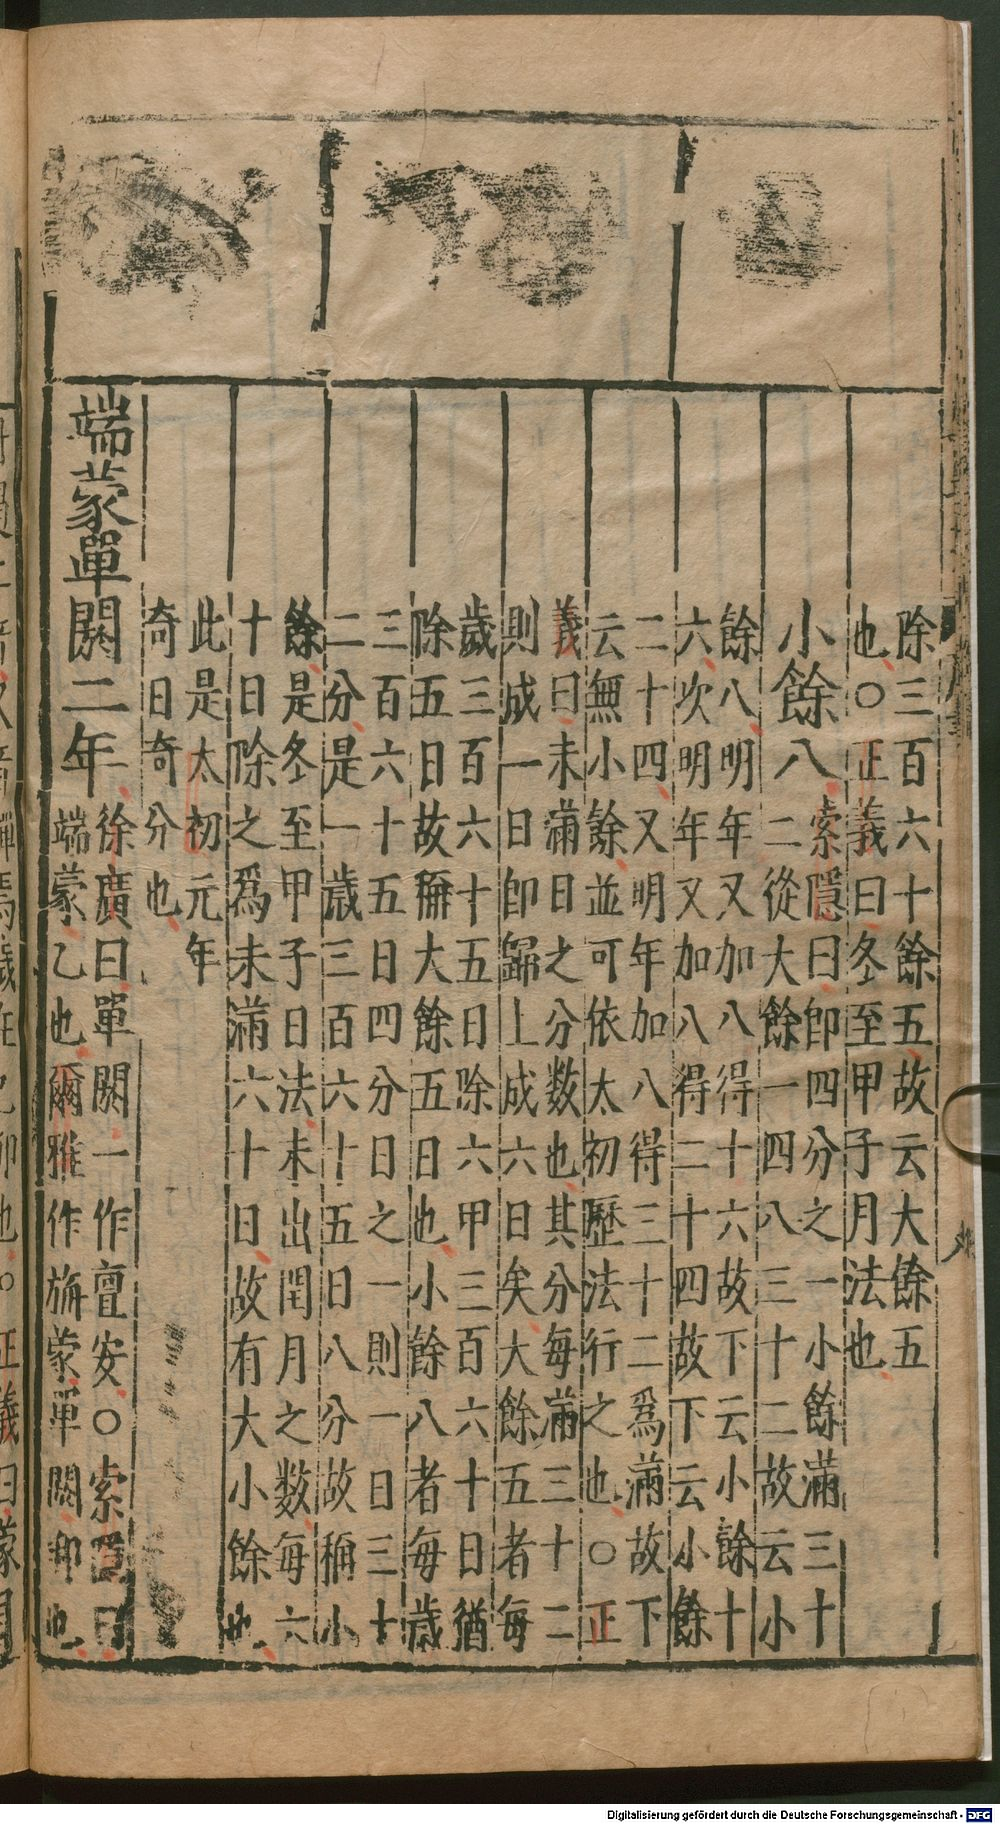 除三百六十餘五故云大餘五
也○正義曰冬至甲子月法也
小餘八
索隱曰卽四分之一小餘滿三十
二從大餘一四八三十二故云小
餘八明年又加八得十六故下云小餘十
六次明年又加八得二十四故下云小餘
二十四又明年加八得三十二爲滿故下
云無小餘並可依太初歷法行之也○正
義曰未滿日之分數也其分每滿三十二
則成一日卽歸上成六日矣大餘五者每
歲三百六十五日除六甲三百六十日猶
除五日故稱大餘五日也小餘八者每歲
三百六十五日四分日之一則一日三十
二分是一歲三百六十五日八分故稱小
餘是冬至甲子日法未出閏月之數每六
十日除之爲未滿六十日故有大小餘也
此是太初元年
奇日奇分也
端蒙單閼二年
徐廣曰單閼一作亶安○索隱曰
端蒙乙也爾雅作旃蒙單閼卯也
Digitalisierung gefördert durch die Deutsche Forschungsgemeinschaft - DFG